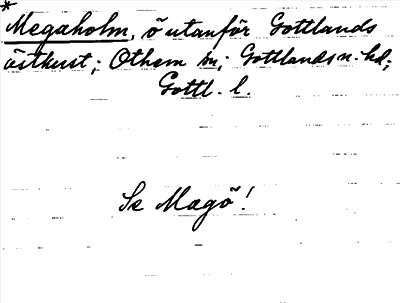 * Megaholm, ö utanför Gottlands
östkust; Othem sn; Gottlands n. hd;
Gottl. l.
Se Magö!